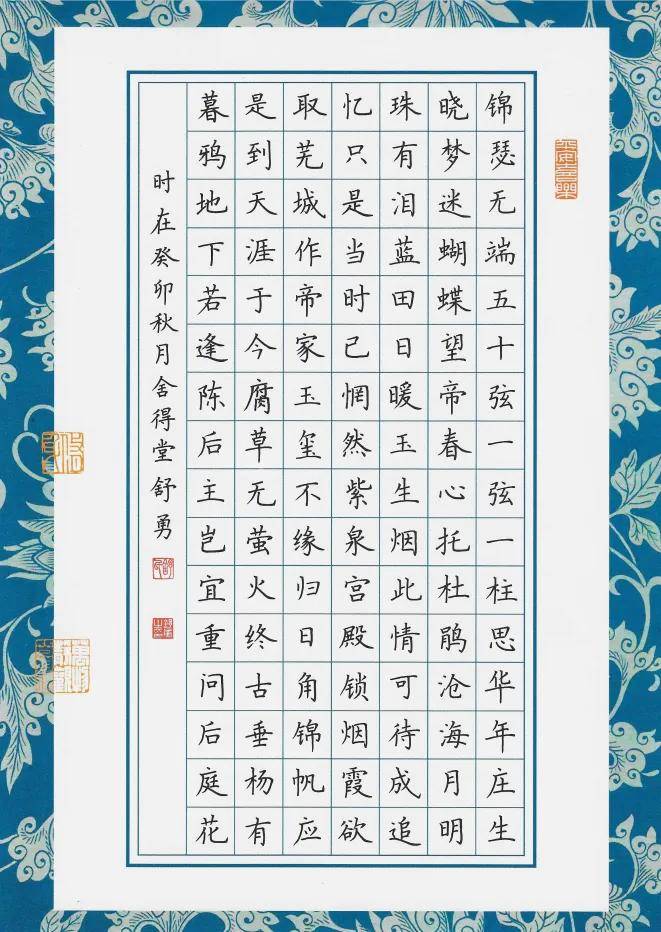 平安喜樂
锦瑟无端五十弦一弦一柱思华年庄生
晓梦迷蝴蝶望帝春心托杜鹃沧海月明
珠有泪蓝田日暖玉生烟此情可待成追
忆只是当时已惘然紫泉宫殿锁烟霞欲
取芜城作帝家玉玺不缘归日角锦帆应
是到天涯于今腐草无萤火终古垂杨有
暮鸦地下若逢陈后主岂宜重问后庭花
时在癸卯秋月舍得堂舒勇